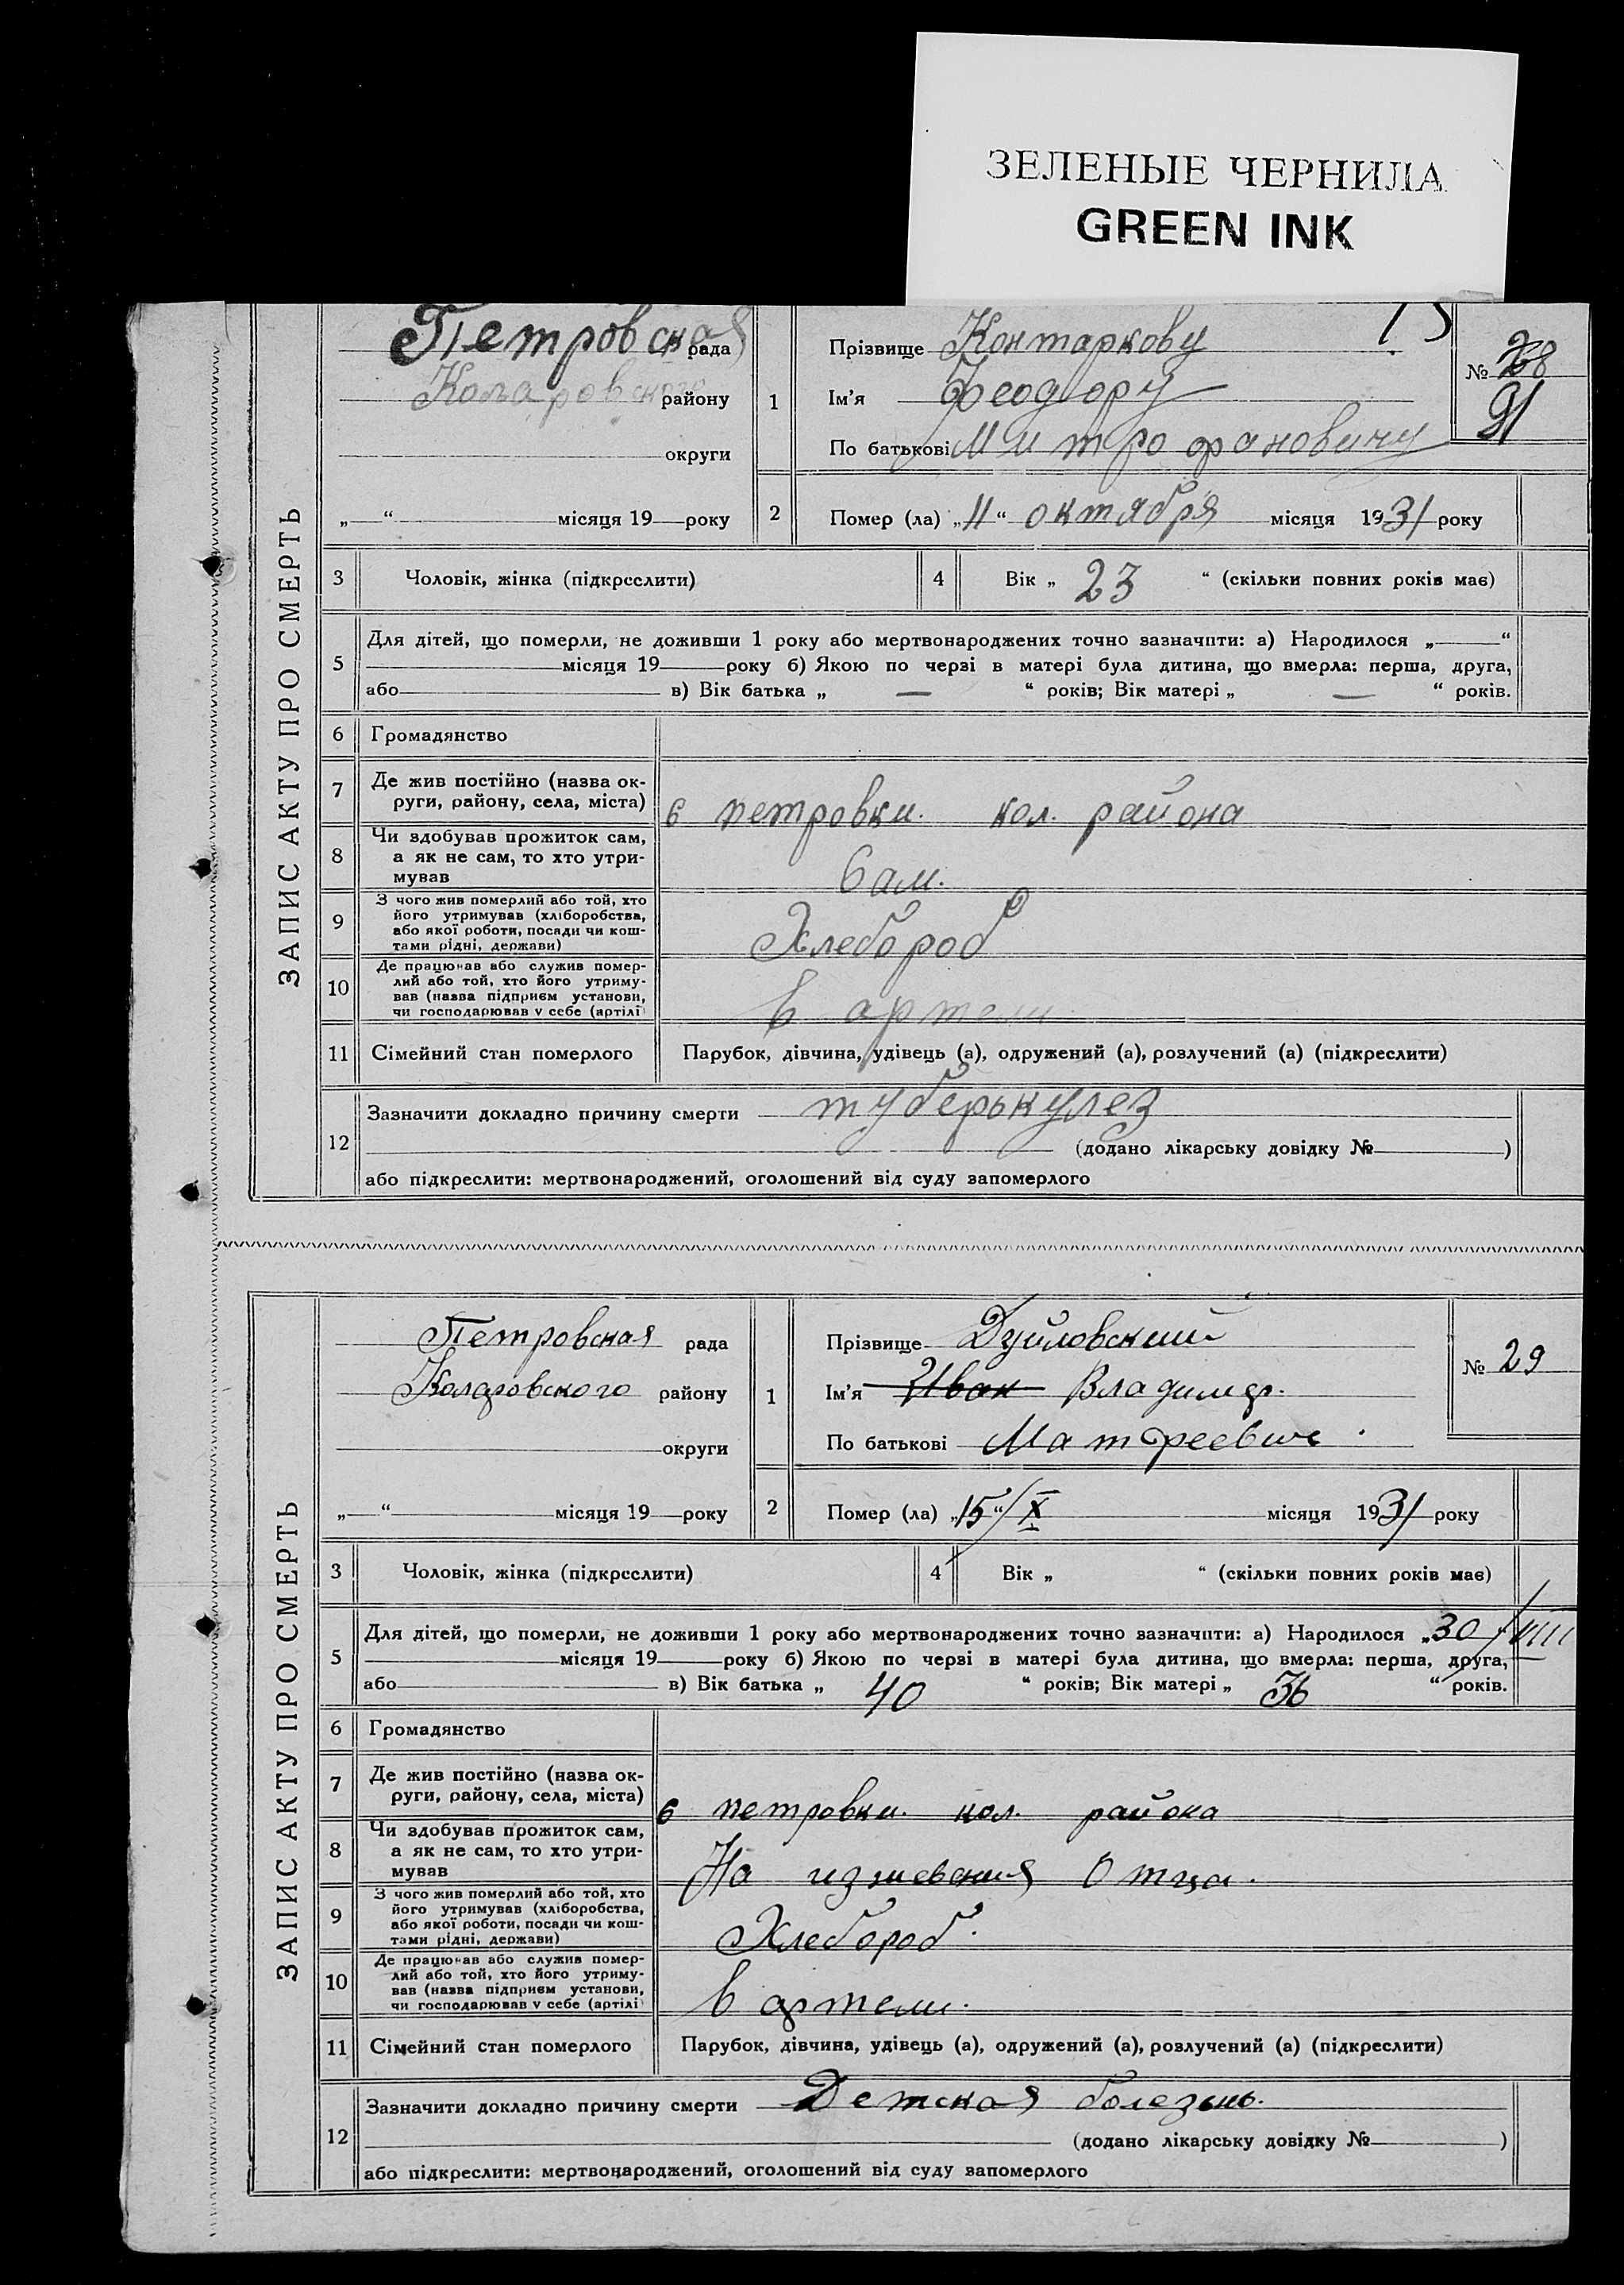 ЗЕЛЕНЫЕ ЧЕРНИЛА
GREEN INK
ЗАПИС АКТУ ПРО СМЕРТЬ
Петровская рада
Коларовского району
округи
„ “ місяця 19 року
1
Прізвище Контаркову
Ім’я Феодору
По батькові Митрофановичу
№ 28
91
2 Помер (ла) „11“ октября місяця 1931 року
3 Чоловік, жінка (підкреслити)
4 Вік „ 23 “ (скільки повних років має)
5 Для дітей, що померли, не доживши 1 року або мертвонароджених точно зазначити: а) Народилося „ “
місяця 19 року б) Якою по черзі в матері була дитина, що вмерла: перша, друга,
або в) Вік батька „ — “ років; Вік матері „ — “ років.
6 Громадянство
7 Де жив постійно (назва ок-
руги, району, села, міста) с петровки. кол. района
8 Чи здобував прожиток сам,
а як не сам, то хто утри-
мував Сам.
9 З чого жив померлий або той, хто
його утримував (хліборобства,
або якої роботи, посади чи кош-
тами рідні, держави) Хлебороб
10 Де працював або служив помер-
лий або той, хто його утриму-
вав (назва підприєм установи,
чи господарював у себе (артілі) в артели
11 Сімейний стан померлого Парубок, дівчина, удівець (а), одружений (а), розлучений (а) (підкреслити)
12 Зазначити докладно причину смерти туберькулез
(додано лікарську довідку № )
або підкреслити: мертвонароджений, оголошений від суду запомерлого
ЗАПИС АКТУ ПРО СМЕРТЬ
Петровская рада
Коларовского району
округи
„ “ місяця 19 року
1
Прізвище Дуйловский
Ім’я Иван Владимер.
По батькові Матфеевич.
№ 29
2 Помер (ла) „15“/X місяця 1931 року
3 Чоловік, жінка (підкреслити)
4 Вік „ “ (скільки повних років має)
5 Для дітей, що померли, не доживши 1 року або мертвонароджених точно зазначити: а) Народилося „30/VIII
місяця 19 року б) Якою по черзі в матері була дитина, що вмерла: перша, друга,
або в) Вік батька „ 40 “ років; Вік матері „ 36 “ років.
6 Громадянство
7 Де жив постійно (назва ок-
руги, району, села, міста) с петровки. кол. района
8 Чи здобував прожиток сам,
а як не сам, то хто утри-
мував На Отца.
9 З чого жив померлий або той, хто
його утримував (хліборобства,
або якої роботи, посади чи кош-
тами рідні, держави) Хлебороб.
10 Де працював або служив помер-
лий або той, хто його утриму-
вав (назва підприєм установи,
чи господарював у себе (артілі) в артели.
11 Сімейний стан померлого Парубок, дівчина, удівець (а), одружений (а), розлучений (а) (підкреслити)
12 Зазначити докладно причину смерти Детская болезнь.
(додано лікарську довідку № )
або підкреслити: мертвонароджений, оголошений від суду запомерлого